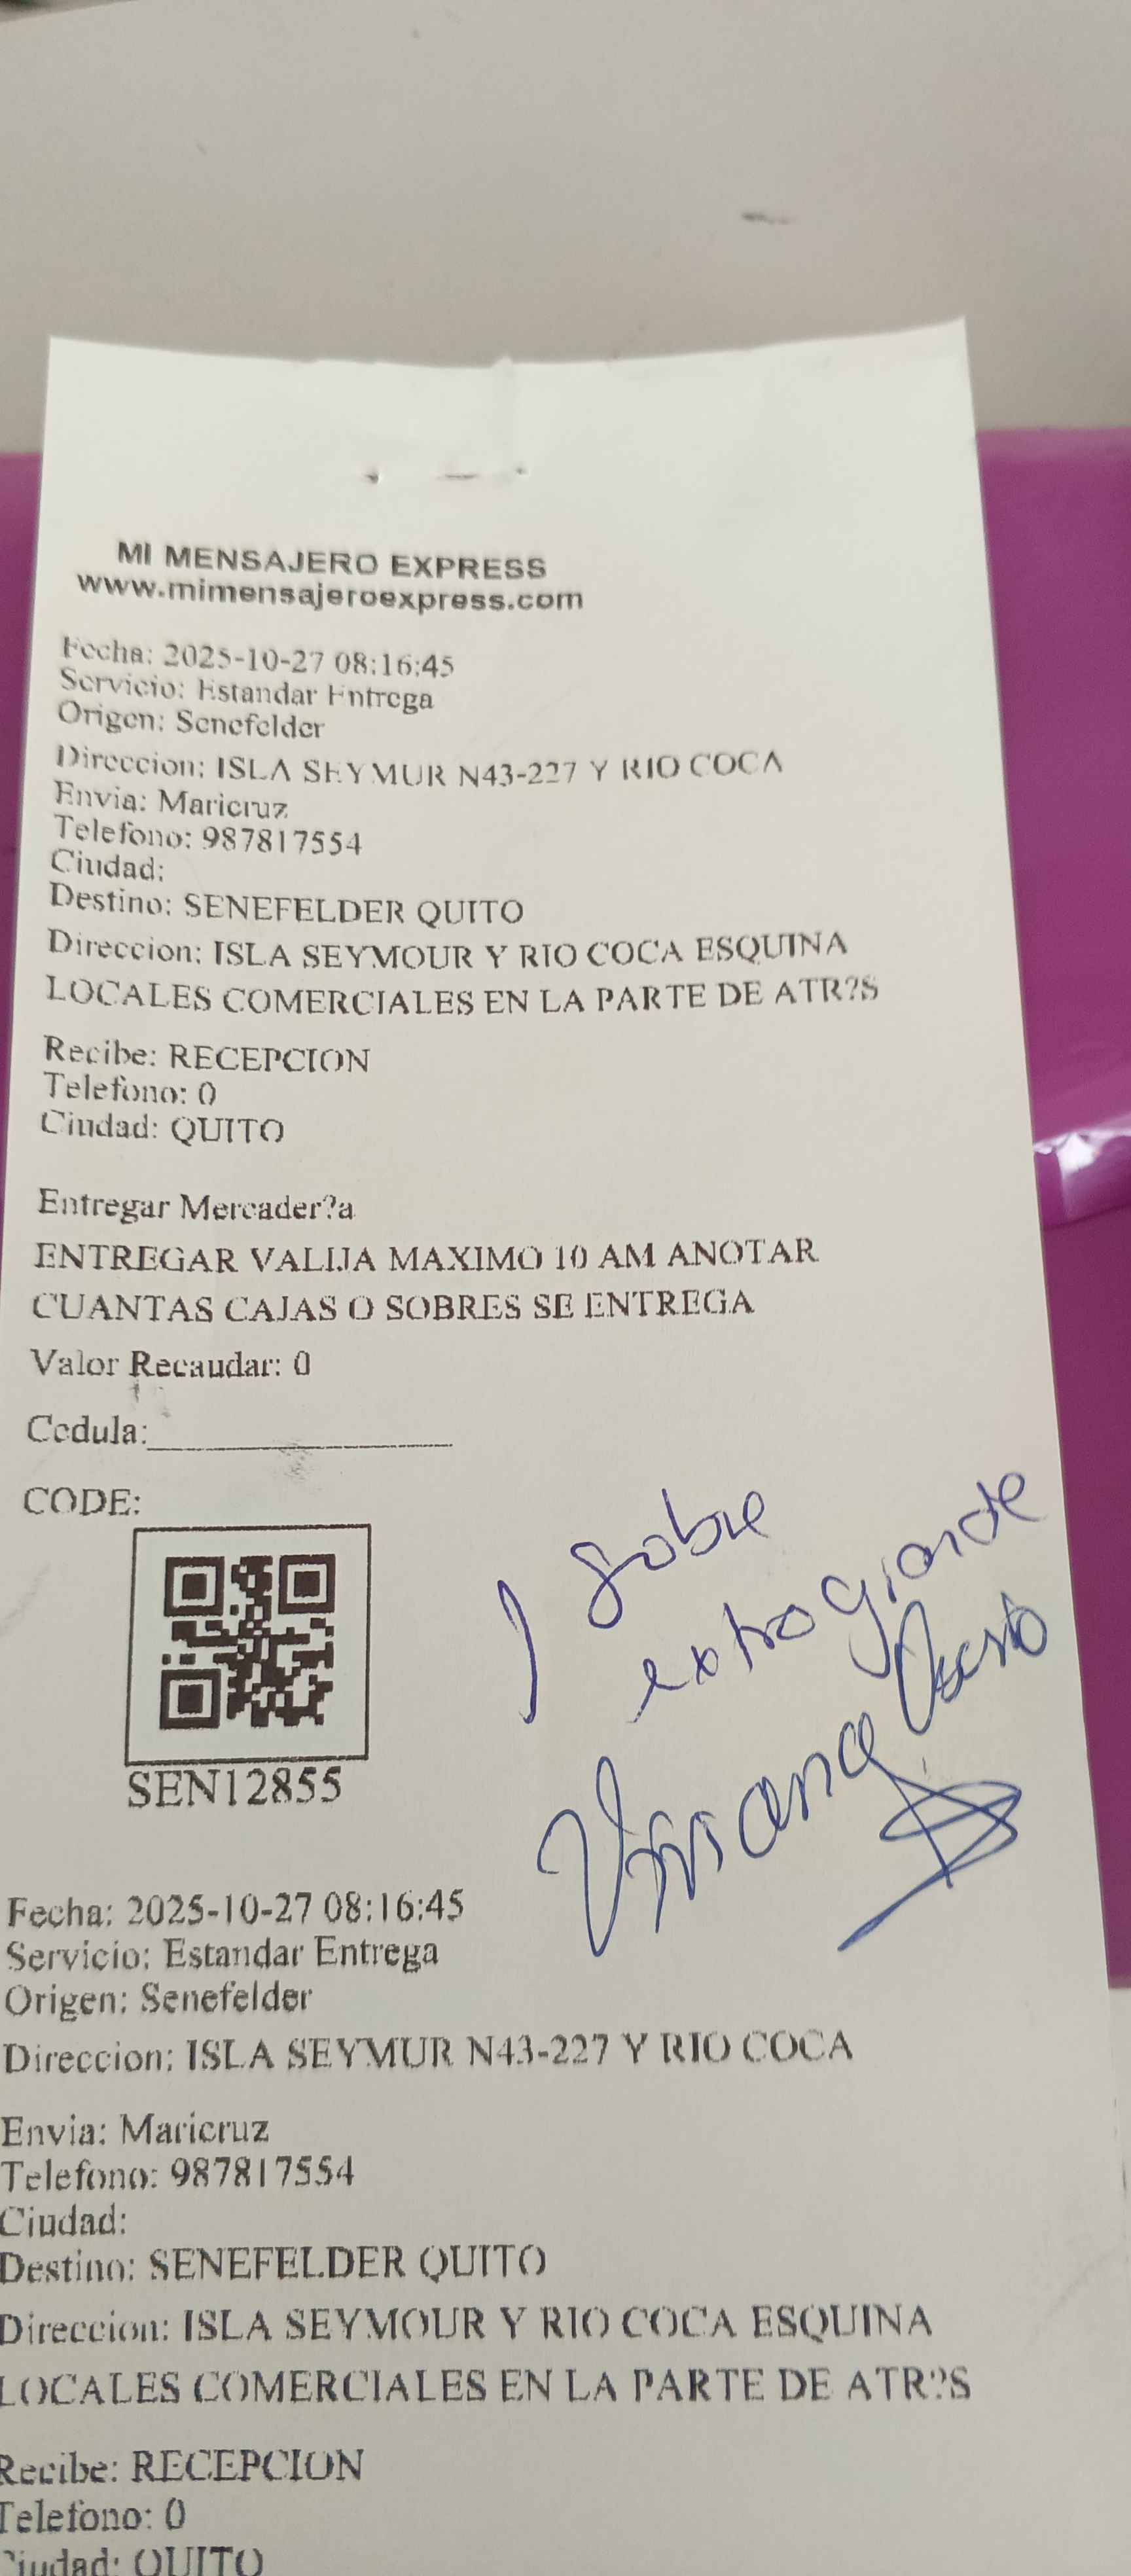 MI MENSAJERO EXPRESS
www.mimensajeroexpress.com
Fecha: 2025-10-27 08:16:45
Servicio: Estandar Entrega
Origen: Senefelder
Direccion: ISLA SEYMUR N43-227 Y RIO COCA
Envia: Maricruz
Telefono: 987817554
Ciudad:
Destino: SENEFELDER QUITO
Direccion: ISLA SEYMOUR Y RIO COCA ESQUINA
LOCALES COMERCIALES EN LA PARTE DE ATR?S
Recibe: RECEPCION
Telefono: 0
Ciudad: QUITO
Entregar Mercader?a
ENTREGAR VALIJA MAXIMO 10 AM ANOTAR
CUANTAS CAJAS O SOBRES SE ENTREGA
Valor Recaudar: 0
Cedula:
CODE:
1 Sobre
extra grande
Viviana
SEN12855
Fecha: 2025-10-27 08:16:45
Servicio: Estandar Entrega
Origen: Senefelder
Direccion: ISLA SEYMUR N43-227 Y RIO COCA
Envia: Maricruz
Telefono: 987817554
Ciudad:
Destino: SENEFELDER QUITO
Direccion: ISLA SEYMOUR Y RIO COCA ESQUINA
LOCALES COMERCIALES EN LA PARTE DE ATR?S
Recibe: RECEPCION
Telefono: 0
Ciudad: QUITO